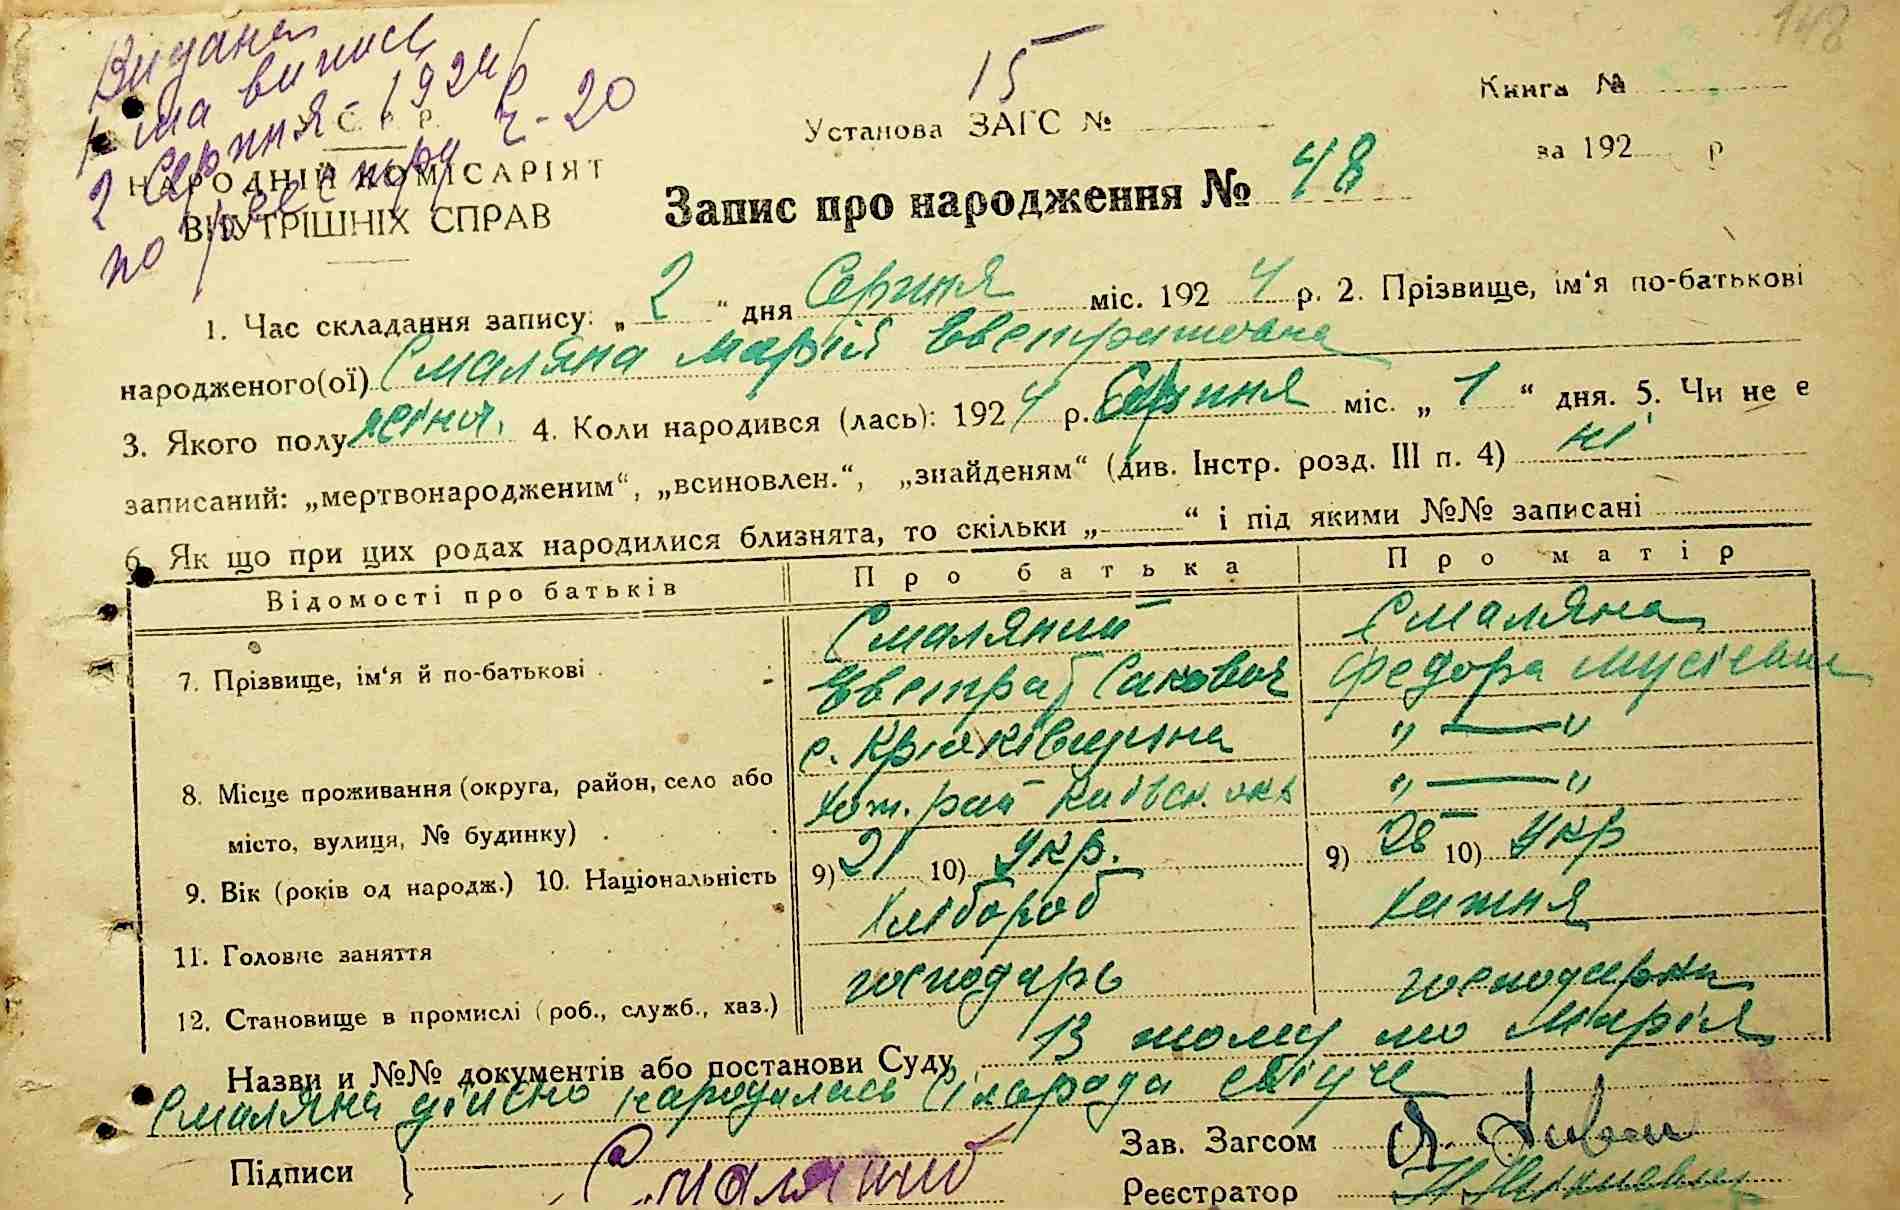 148
Видана
1-ша випись
2 Серпня 1924 р.
по реєстру Ч-20
15
У. С. Р. Р.
НАРОДНІЙ КОМІСАРІЯТ
ВНУТРІШНІХ СПРАВ
Установа ЗАГС №
Книга №
за 192 р
Запис про народження № 48
1. Час складання запису: „ 2 “ дня Серпня міс. 192 4 р. 2. Прізвище, ім‘я по-батькові
народженого(ої) Смаляна Марія Евстратовна
3. Якого полу жіноч. 4. Коли народився (лась): 192 4 р. Серпня міс. „ 1 “ дня. 5. Чи не є
записаний: „мертвонародженим“, „всиновлен.“, „знайденям“ (див. Інстр. розд. III п. 4) ні
6. Як що при цих родах народилися близнята, то скільки „ “ і під якими №№ записані
Відомості про батьків Про батька Про матір
7. Прізвище, ім‘я й по-батькові . Смаляний Смаляна
Евстраб Сакович Федора Мусієвна
с. Крюківщина „ — „
8. Місце проживання (округа, район, село або
місто, вулиця, № будинку) . Хот. рай Київск. окр „ — „
9. Вік (років од народж.) 10. Національність 9) 21 10) Укр. 9) 10) Укр
11. Головне заняття Хлібороб Хатня
12. Становище в промислі (роб., служб., хаз.) господарь господарки
Назви и №№ документів або постанови Суду В тому що Марія
Смаляна дійсно народилась
Підписи Смаляний
Зав. Загсом
Реєстратор